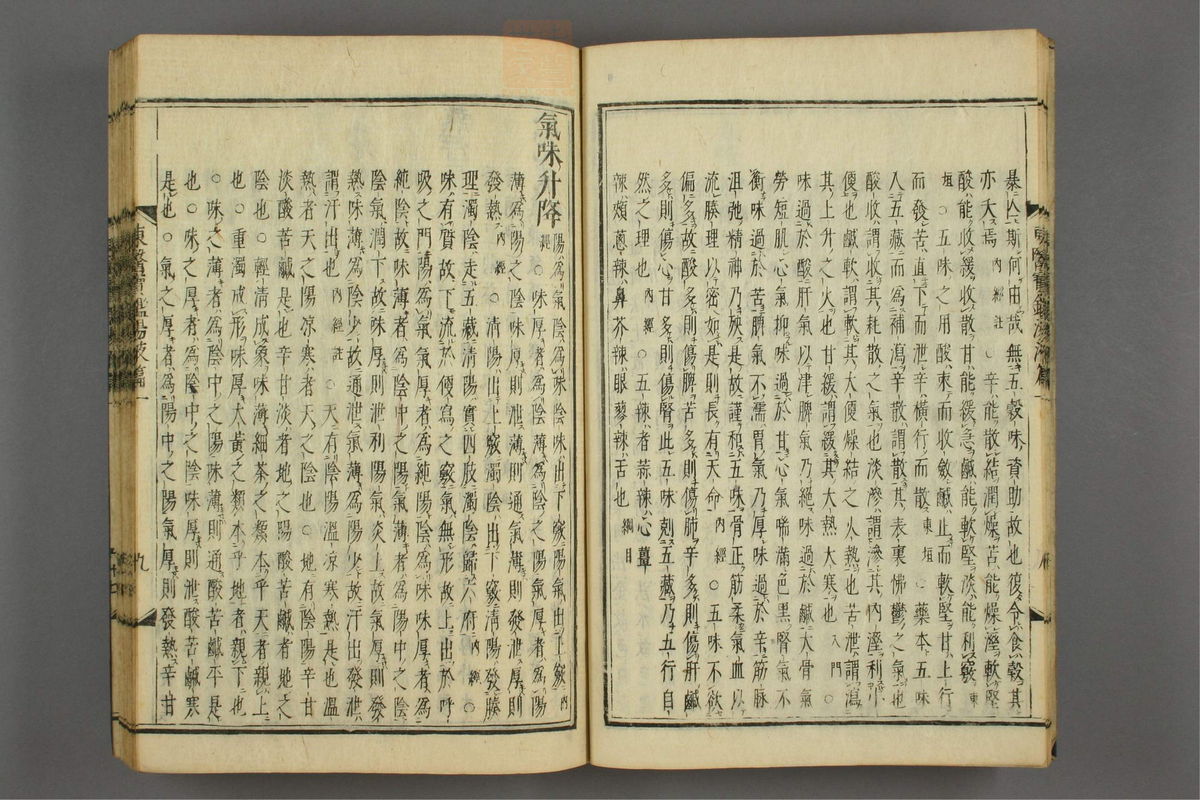 暴亡斯何由哉無五穀味資助故也復令食穀其
亦夭焉內經註○辛能散結潤燥苦能燥濕軟堅
酸能收緩收散甘能緩急鹹能軟堅淡能利竅東
垣○五味之用酸束而收斂鹹止而軟堅甘上行
而發苦直下而泄辛橫行而散東垣○藥本五味
入五藏而爲補瀉辛散謂散其表裏怫鬱之氣也
酸收謂收其耗散之氣也淡滲謂滲其內濕利小
便也鹹軟謂軟其大便燥結之火熱也苦泄謂瀉
其上升之火也甘緩謂緩其大熱大寒也入門○
味過於酸肝氣以津脾氣乃絕味過於鹹大骨氣
勞短肌心氣抑味過於甘心氣喘滿色黑腎氣不
衡味過於苦脾氣不濡胃氣乃厚味過於辛筋脉
沮弛精神乃殃是故謹和五味骨正筋柔氣血以
流腠理以密如是則長有天命內經○五味不欲
偏多故酸多則傷脾苦多則傷肺辛多則傷肝鹹
多則傷心甘多則傷腎此五味剋五藏乃五行自
然之理也內經○五辣者蒜辣心薑
辣頰葱辣鼻芥辣眼蓼辣舌也綱目
氣味升降陽爲氣陰爲味陰味出下竅陽氣出上竅內
經○味厚者爲陰薄爲陰之陽氣厚者爲陽
薄爲陽之陰味厚則泄薄則通氣薄則發泄厚則
發熱內經○清陽出上竅濁陰出下竅清陽發腠
理濁陰走五藏清陽實四肢濁陰歸六府內經○
味有質故下流於便寫之竅氣無形故上出於呼
吸之門陽爲氣氣厚者爲純陽陰爲味味厚者爲
純陰故味薄者爲陰中之陽氣薄者爲陽中之陰
陰氣潤下故味厚則泄利陽氣炎上故氣厚則發
熱味薄爲陰少故通泄氣薄爲陽少故汗出發泄
謂汗出也內經註○天有陰陽溫凉寒熱是也溫
熱者天之陽凉寒者天之陰也○地有陰陽辛甘
淡酸苦鹹是也辛甘淡者地之陽酸苦鹹者地之
陰也○輕清成象味薄細茶之類本乎天者親上
也○重濁成形味厚大黃之類本乎地者親下也
○味之薄者爲陰中之陽味薄則通酸苦鹹平是
也○味之厚者爲陰中之陰味厚則泄酸苦鹹寒
是也○氣之厚者爲陽中之陽氣厚則發熱辛甘
東醫寶鑑湯液篇一
九